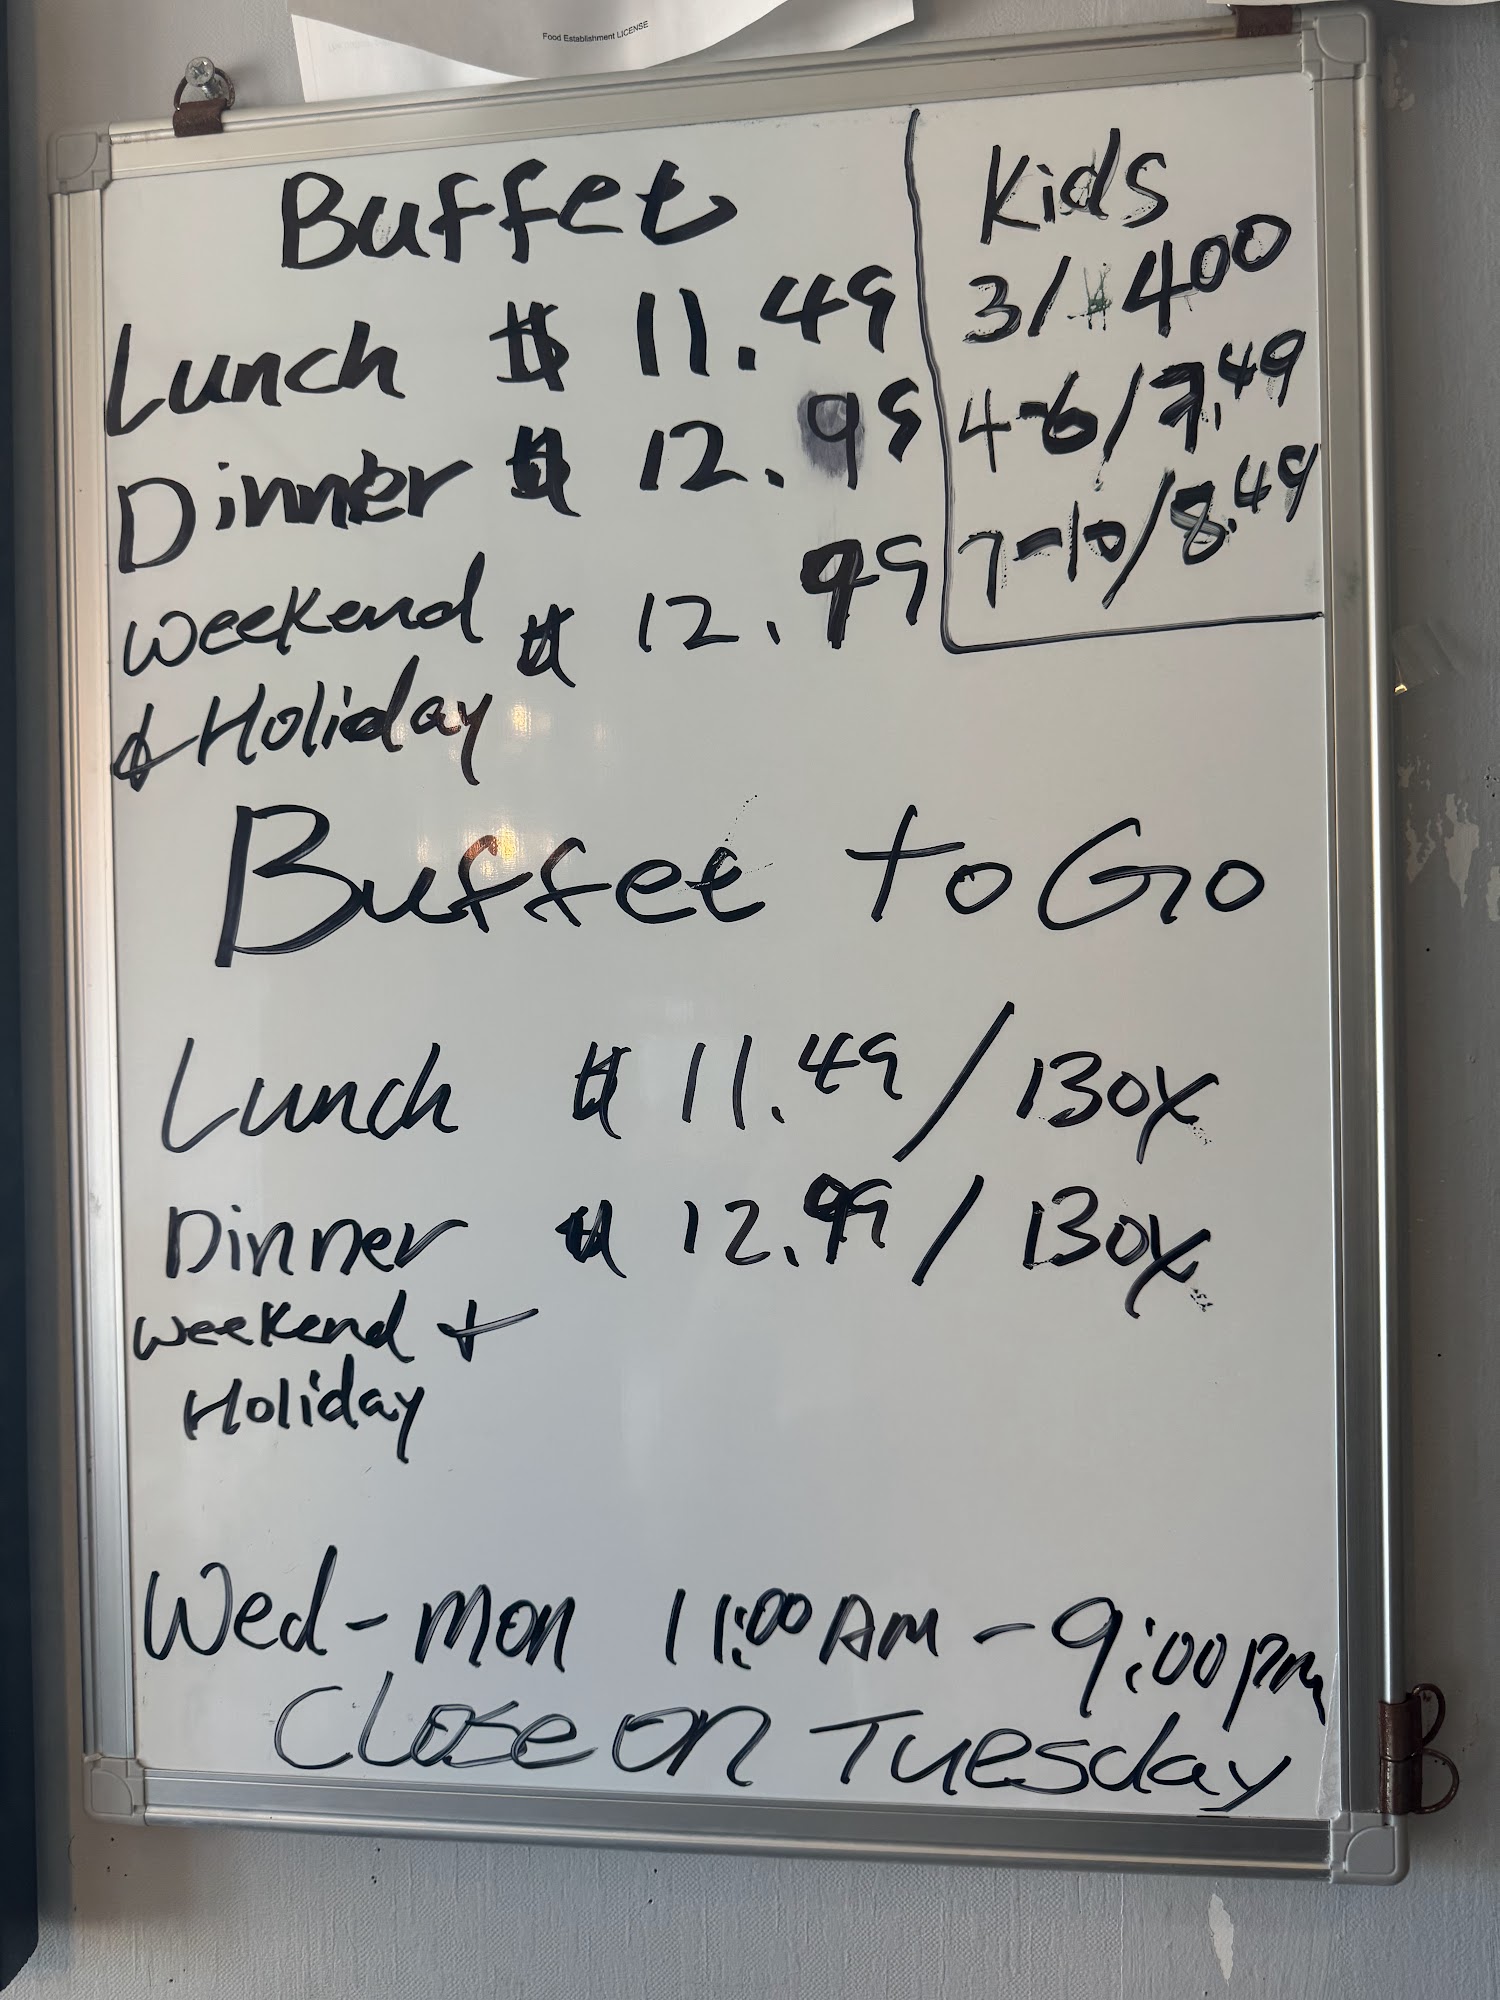 Food Establishment LICENSE
Buffet
Lunch $ 11.49
Dinner $ 12.99
weekend $ 12.99
& Holiday
Kids
3/ $ 400
4-6/7.49
7-10/8.49
Buffet to Go
Lunch $ 11.49 / Box
Dinner $ 12.99 / Box
weekend +
Holiday
Wed - Mon 11:00 AM - 9:00 pm
Close on Tuesday